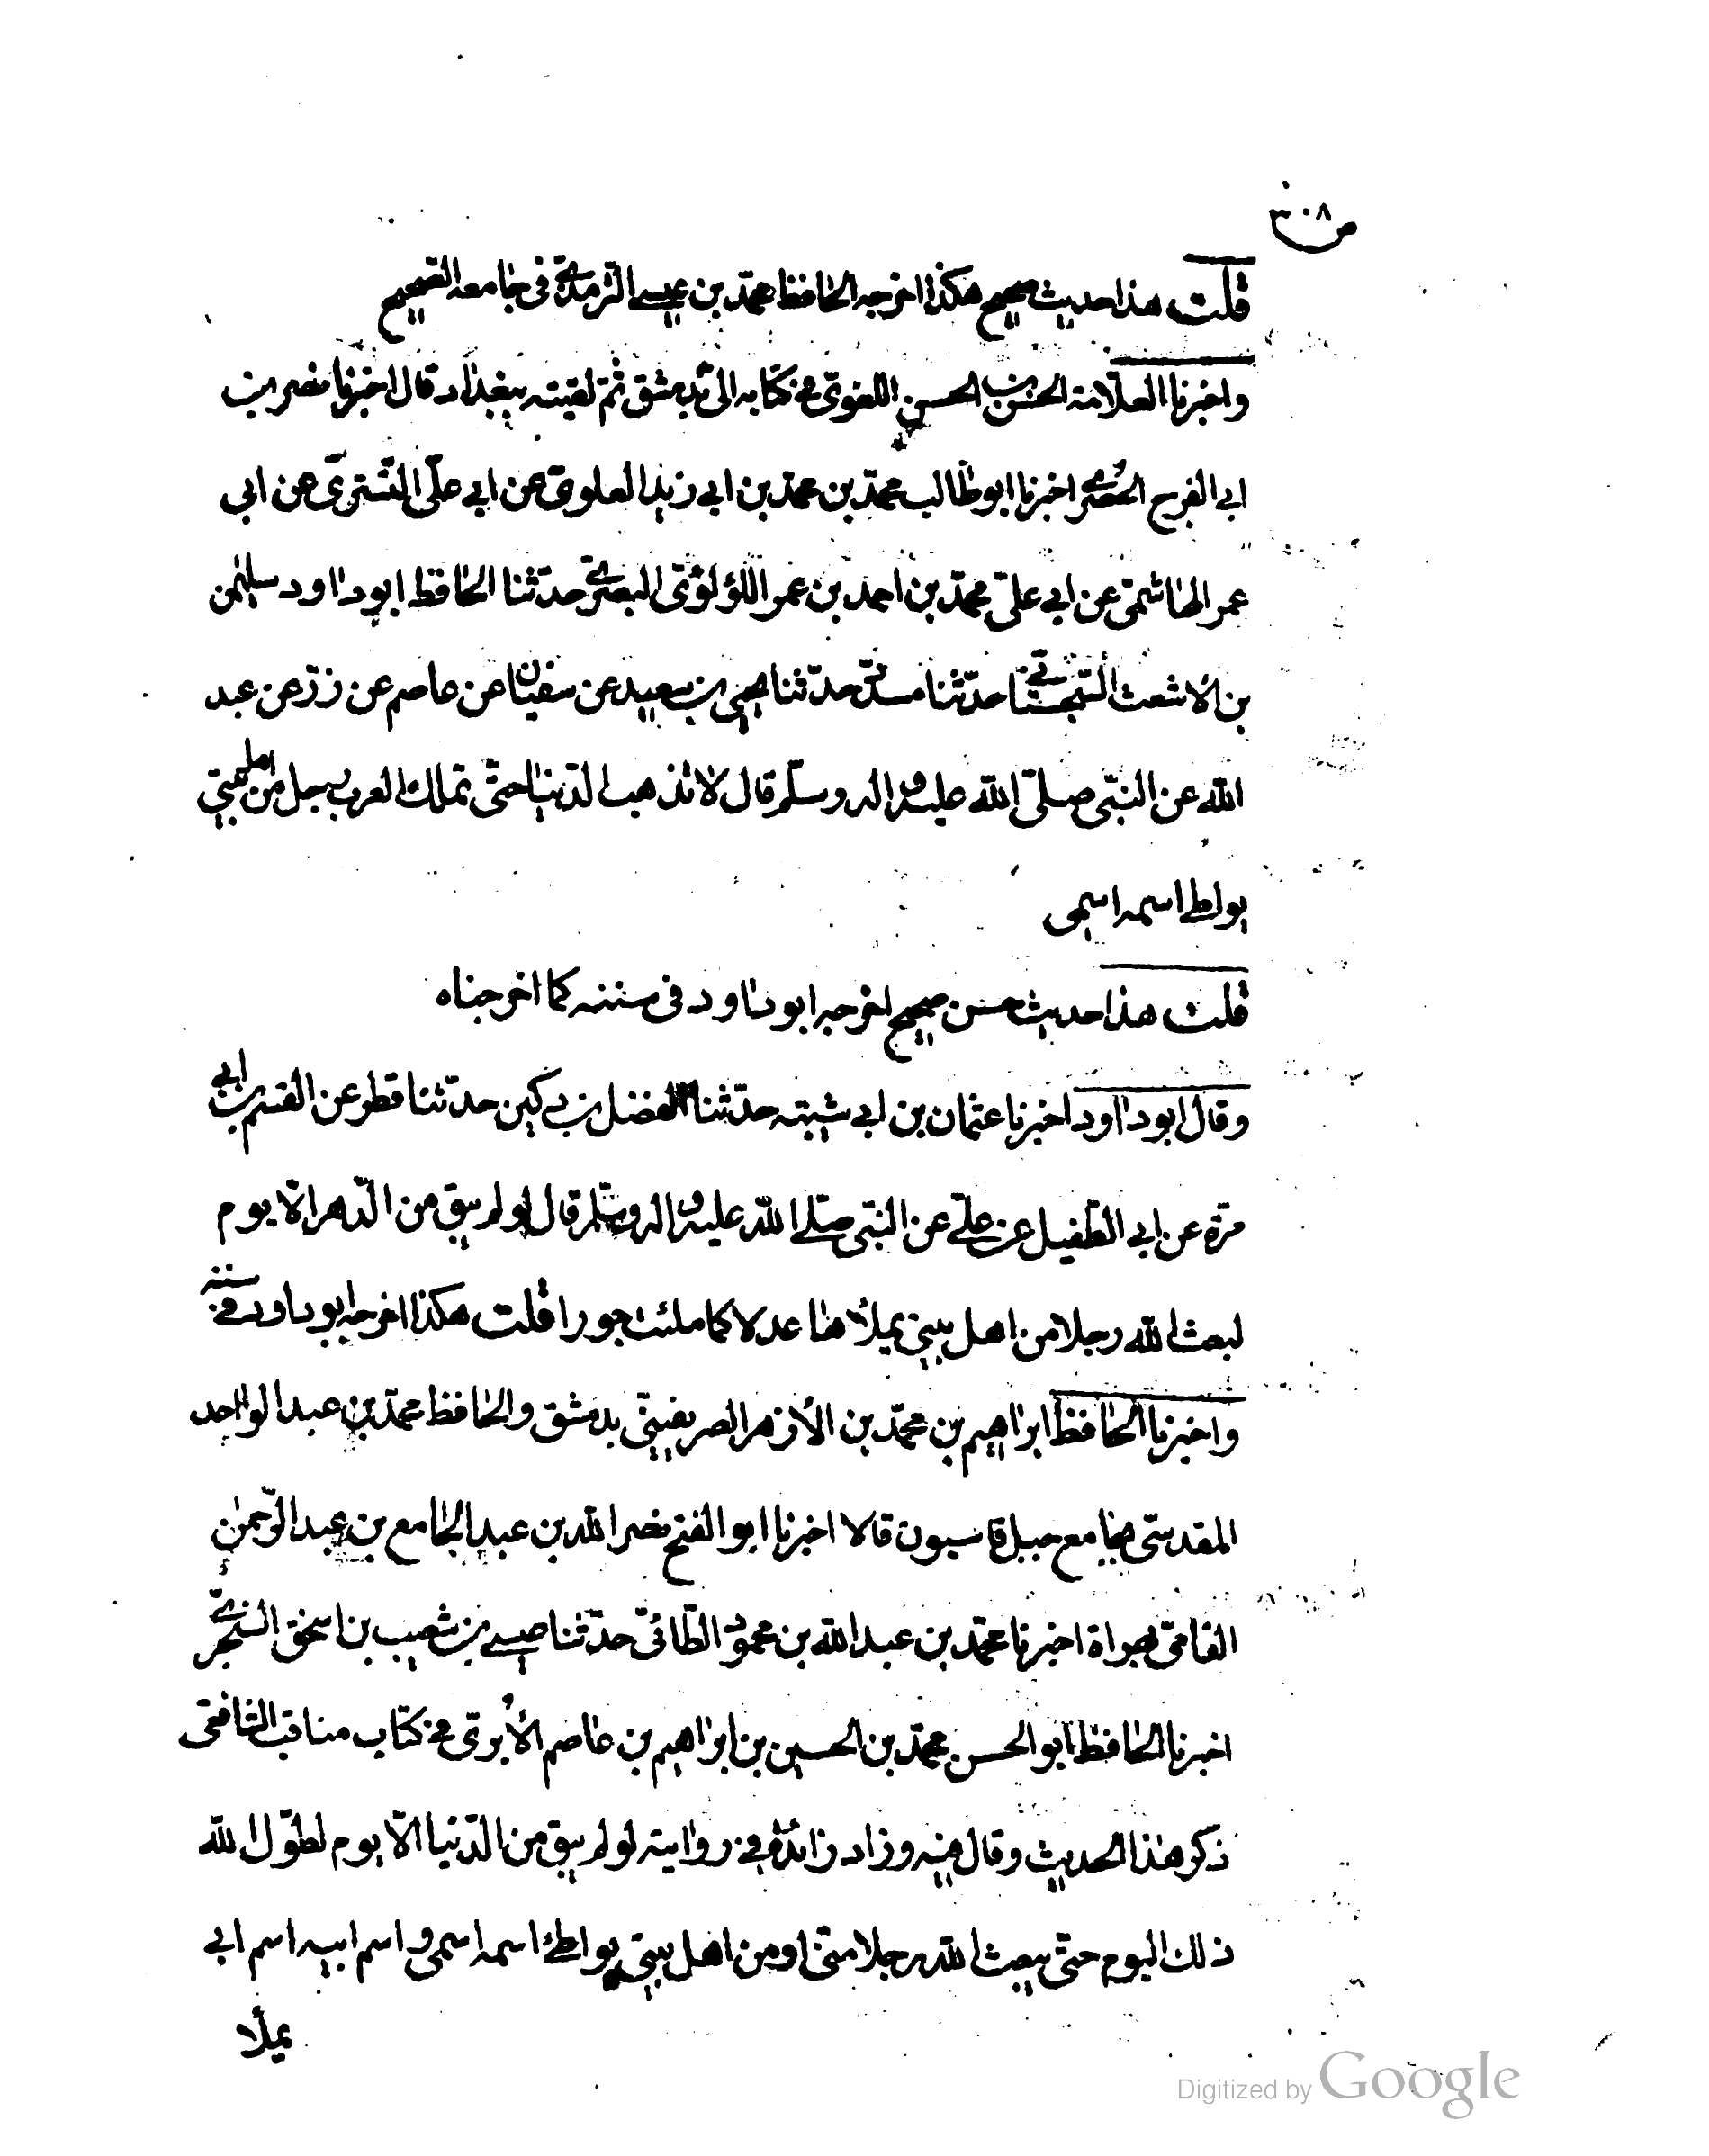 ص ٣٠٨
قلت هذا حديث صحيح هكذا اخرجه الحافظ محمّد بن عيسى الترمذي فى جامعه الصّحيح
واخبرنا العلّامة الحسن بن الحسن اللغوىّ فى كتابه الىّ بدمشق ثمّ لقيته ببغداد قال اخبرنا نصر بن
ابي الفرج الحصري اخبرنا ابو طالب محمّد بن محمّد بن ابي زيد العلوىّ عن ابي علىّ التّسترىّ عن ابي
عمر الهاشمىّ عن ابي علىّ محمّد بن احمد بن عمر اللؤلؤىّ البصرى حدّثنا الحافظ ابو داود سليمٰن
بن الاشعث السّجستانى حدّثنا مسدّد حدّثنا يحيى بن سعيد عن سفيان عن عاصم عن زرّ عن عبد
الله عن النبىّ صلّى الله عليه واله وسلّم قال لا تذهب الدّنيا حتّى تملك العرب رجل من اهل بيتى
يواطى اسمه اسمى
قلت هذا حديث حسن صحيح اخرجه ابو داود فى سننه كما اخرجناه
وقال ابو داود اخبرنا عثمان بن ابي شيبة حدّثنا الفضل بن دكين حدّثنا فطر عن القسم بن ابي
مرّة عن ابي الطّفيل عن علىّ عن النبىّ صلّى الله عليه واله وسلّم قال لو لم يبق من الدّهر الّا يوم
لبعث الله رجلا من اهل بيتى يملأها عدلا كما ملئت جورا قلت هكذا اخرجه ابو داود فى سننه
واخبرنا الحافظ ابراهيم بن محمّد بن الأزهر الصريفينىّ بدمشق والحافظ محمّد بن عبد الواحد
المقدسىّ بجامع جبل قاسيون قالا اخبرنا ابو الفتح نصر الله بن عبد الجامع بن عبد الرّحمٰن
الفامىّ بهراة اخبرنا محمّد بن عبد الله بن محمود الطّائىّ حدّثنا عيسى بن شعيب بن اسحٰق السّجزى
اخبرنا الحافظ ابو الحسن محمّد بن الحسين بن ابراهيم بن عاصم الأبرىّ فى كتاب مناقب الشافعى
ذكر هذا الحديث وقال فيه وزاد زائدة فى روايته لو لم يبق من الدّنيا الّا يوم لطوّل الله
ذلك اليوم حتّى يبعث الله رجلا منّى او من اهل بيتى يواطئ اسمه اسمى واسم ابيه اسم ابي
يملأ
Digitized by Google